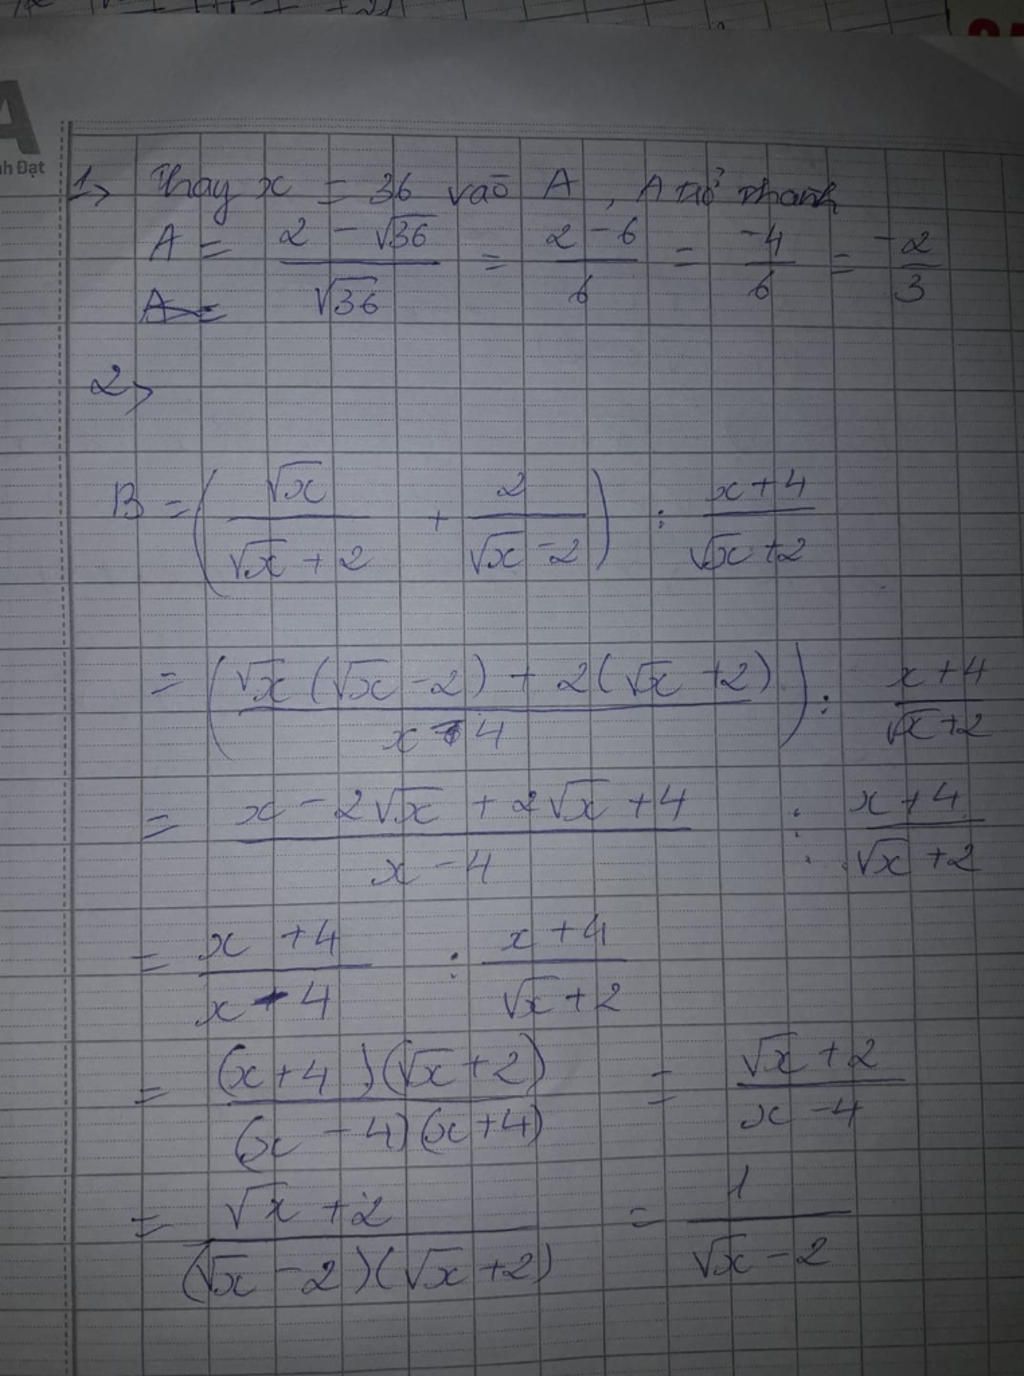 A
nh Đạt
1, Thay x = 36 vào A, A trở thành
A = (2 - √36)/√36 = (2 - 6)/6 = -4/6 = -2/3
A =
2,
B = (√x/(√x + 2) + 2/(√x - 2)) : (x + 4)/(√x + 2)
= ((√x(√x - 2) + 2(√x + 2))/(x - 4)) : (x + 4)/(√x + 2)
= (x - 2√x + 2√x + 4)/(x - 4) : (x + 4)/(√x + 2)
= (x + 4)/(x - 4) : (x + 4)/(√x + 2)
= ((x + 4)(√x + 2))/((x - 4)(x + 4)) = (√x + 2)/(x - 4)
= (√x + 2)/((√x - 2)(√x + 2)) = 1/(√x - 2)